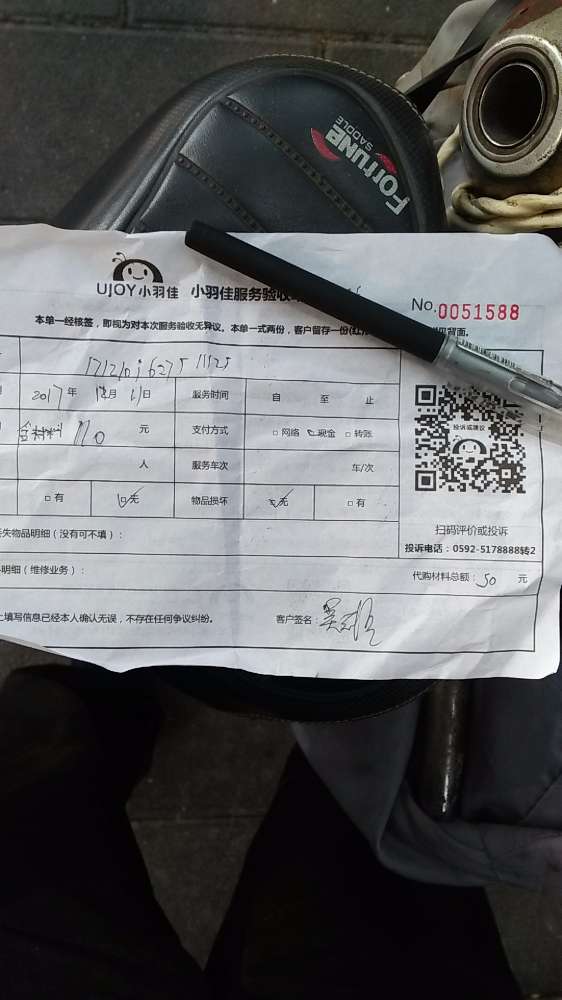 FORTUNE
SADDLE
UJOY小羽佳 小羽佳服务验收
No.0051588
本单一经核签，即视为对本次服务验收无异议。本单一式两份，客户留存一份(红
背面。
2017年12月 日 服务时间 自 至 止
含材料 170 元 支付方式 □网络 □现金 □转账
投诉或建议
人 服务车次 车/次
□有 □无 物品损坏 □无 □有
扫码评价或投诉
失物品明细（没有可不填）：
投诉电话：0592-5178888转2
明细（维修业务）：
代购材料总额：50 元
上填写信息已经本人确认无误，不存在任何争议纠纷。 客户签名：